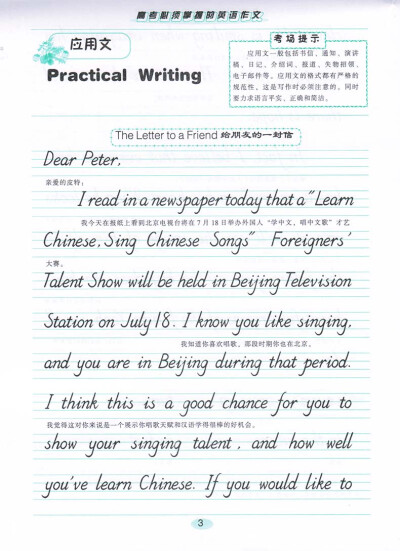 高考必须掌握的英语作文
应用文
Practical Writing
考场提示
应用文一般包括书信、通知、演讲
稿、日记、介绍词、报道、失物招领、
电子邮件等。应用文的格式都有严格的
规范性，这是写作时必须注意的。同时
要力求语言平实、正确和简洁。
The Letter to a Friend 给朋友的一封信
Dear Peter,
亲爱的皮特：
I read in a newspaper today that a "Learn
我今天在报纸上看到北京电视台将在7月18日举办外国人“学中文，唱中文歌”才艺
Chinese, Sing Chinese Songs" Foreigners'
大赛。
Talent Show will be held in Beijing Television
Station on July 18. I know you like singing,
我知道你喜欢唱歌，那段时期你也在北京。
and you are in Beijing during that period.
I think this is a good chance for you to
我觉得这对你来说是一个展示你唱歌天赋和汉语学得很棒的好机会。
show your singing talent, and how well
you've learn Chinese. If you would like to
3